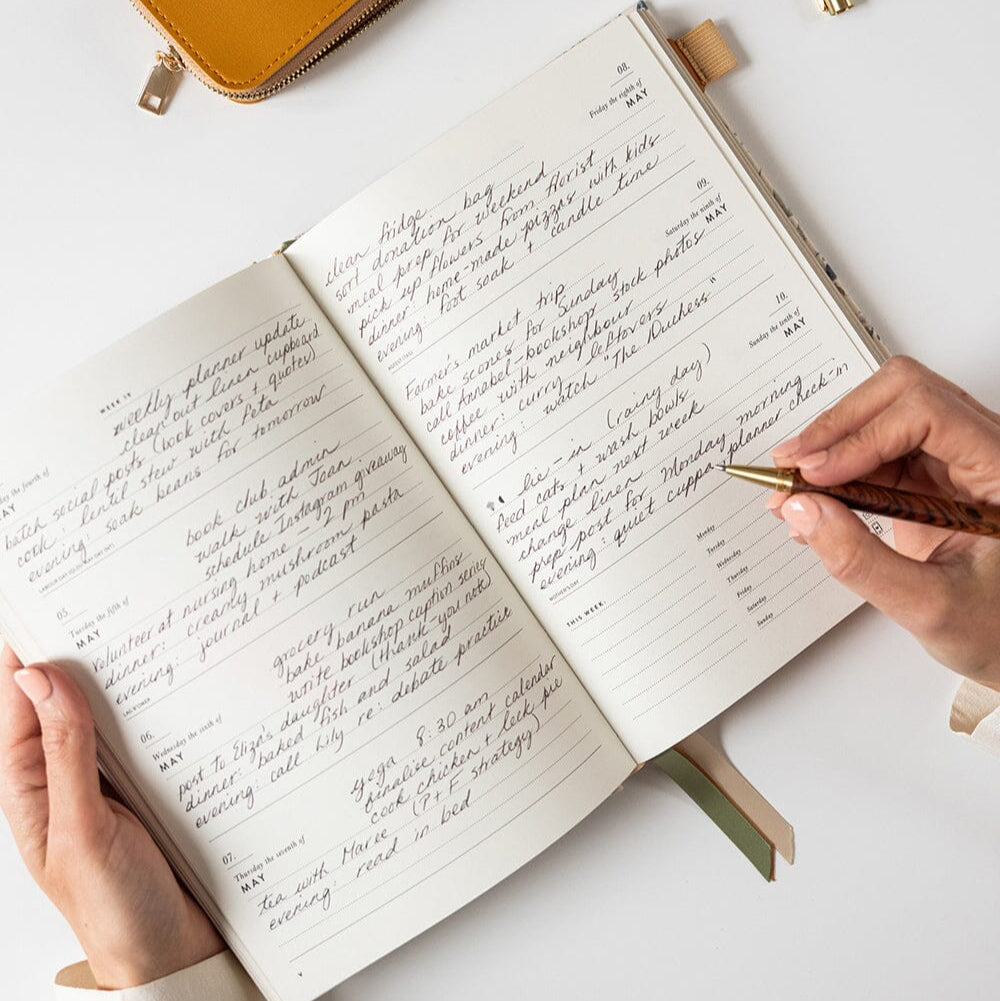 WEEK 19
weekly planner update
clean out linen cupboard
batch social posts (book covers + quotes)
cook: lentil stew with Peta
evening: soak beans for tomorrow
05.
Tuesday the fifth of
MAY
book club admin
walk with Joan
schedule Instagram giveaway
Volunteer at nursing home - 2 pm
dinner: creamy mushroom pasta
evening: journal + podcast
06.
Wednesday the sixth of
MAY
grocery run
bake banana muffins
write bookshop caption series
post to Eliza's daughter (thank-you note)
dinner: baked fish and salad
evening: call Lily re: debate practice
07.
Thursday the seventh of
MAY
yoga 8:30 am
finalise content calendar
cook chicken + leek pie
tea with Maree (P+F strategy)
evening: read in bed
08.
Friday the eighth of
MAY
clean fridge
sort donation bag
meal prep for weekend
pick up flowers from florist
dinner: home-made pizzas with kids
evening: foot soak + candle time
09.
Saturday the ninth of
MAY
Farmer's market trip
bake scones for Sunday
call Annabel - bookshop stock photos
coffee with neighbour
dinner: curry leftovers
evening: watch "The Duchess"
10.
Sunday the tenth of
MAY
lie-in (rainy day)
feed cats + wash bowls
meal plan next week
change linen
prep post for Monday morning
evening: quiet cuppa + planner check-in
MOTHER'S DAY
THIS WEEK:
Monday
Tuesday
Wednesday
Thursday
Friday
Saturday
Sunday